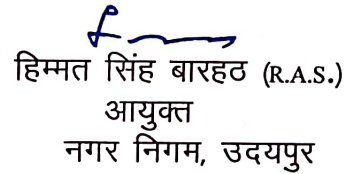 हिम्मत सिंह बारहठ (R.A.S.)
आयुक्त
नगर निगम, उदयपुर